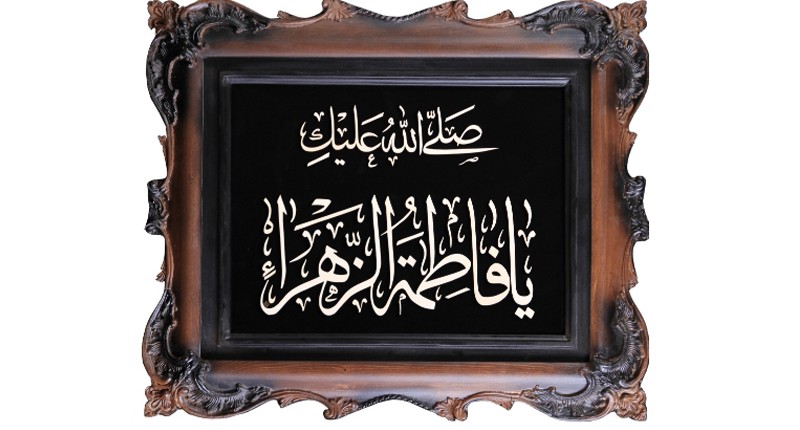 صَلَّی اللهُ عَلَیْكِ
یا فاطِمَةُ الزَّهْراءِ